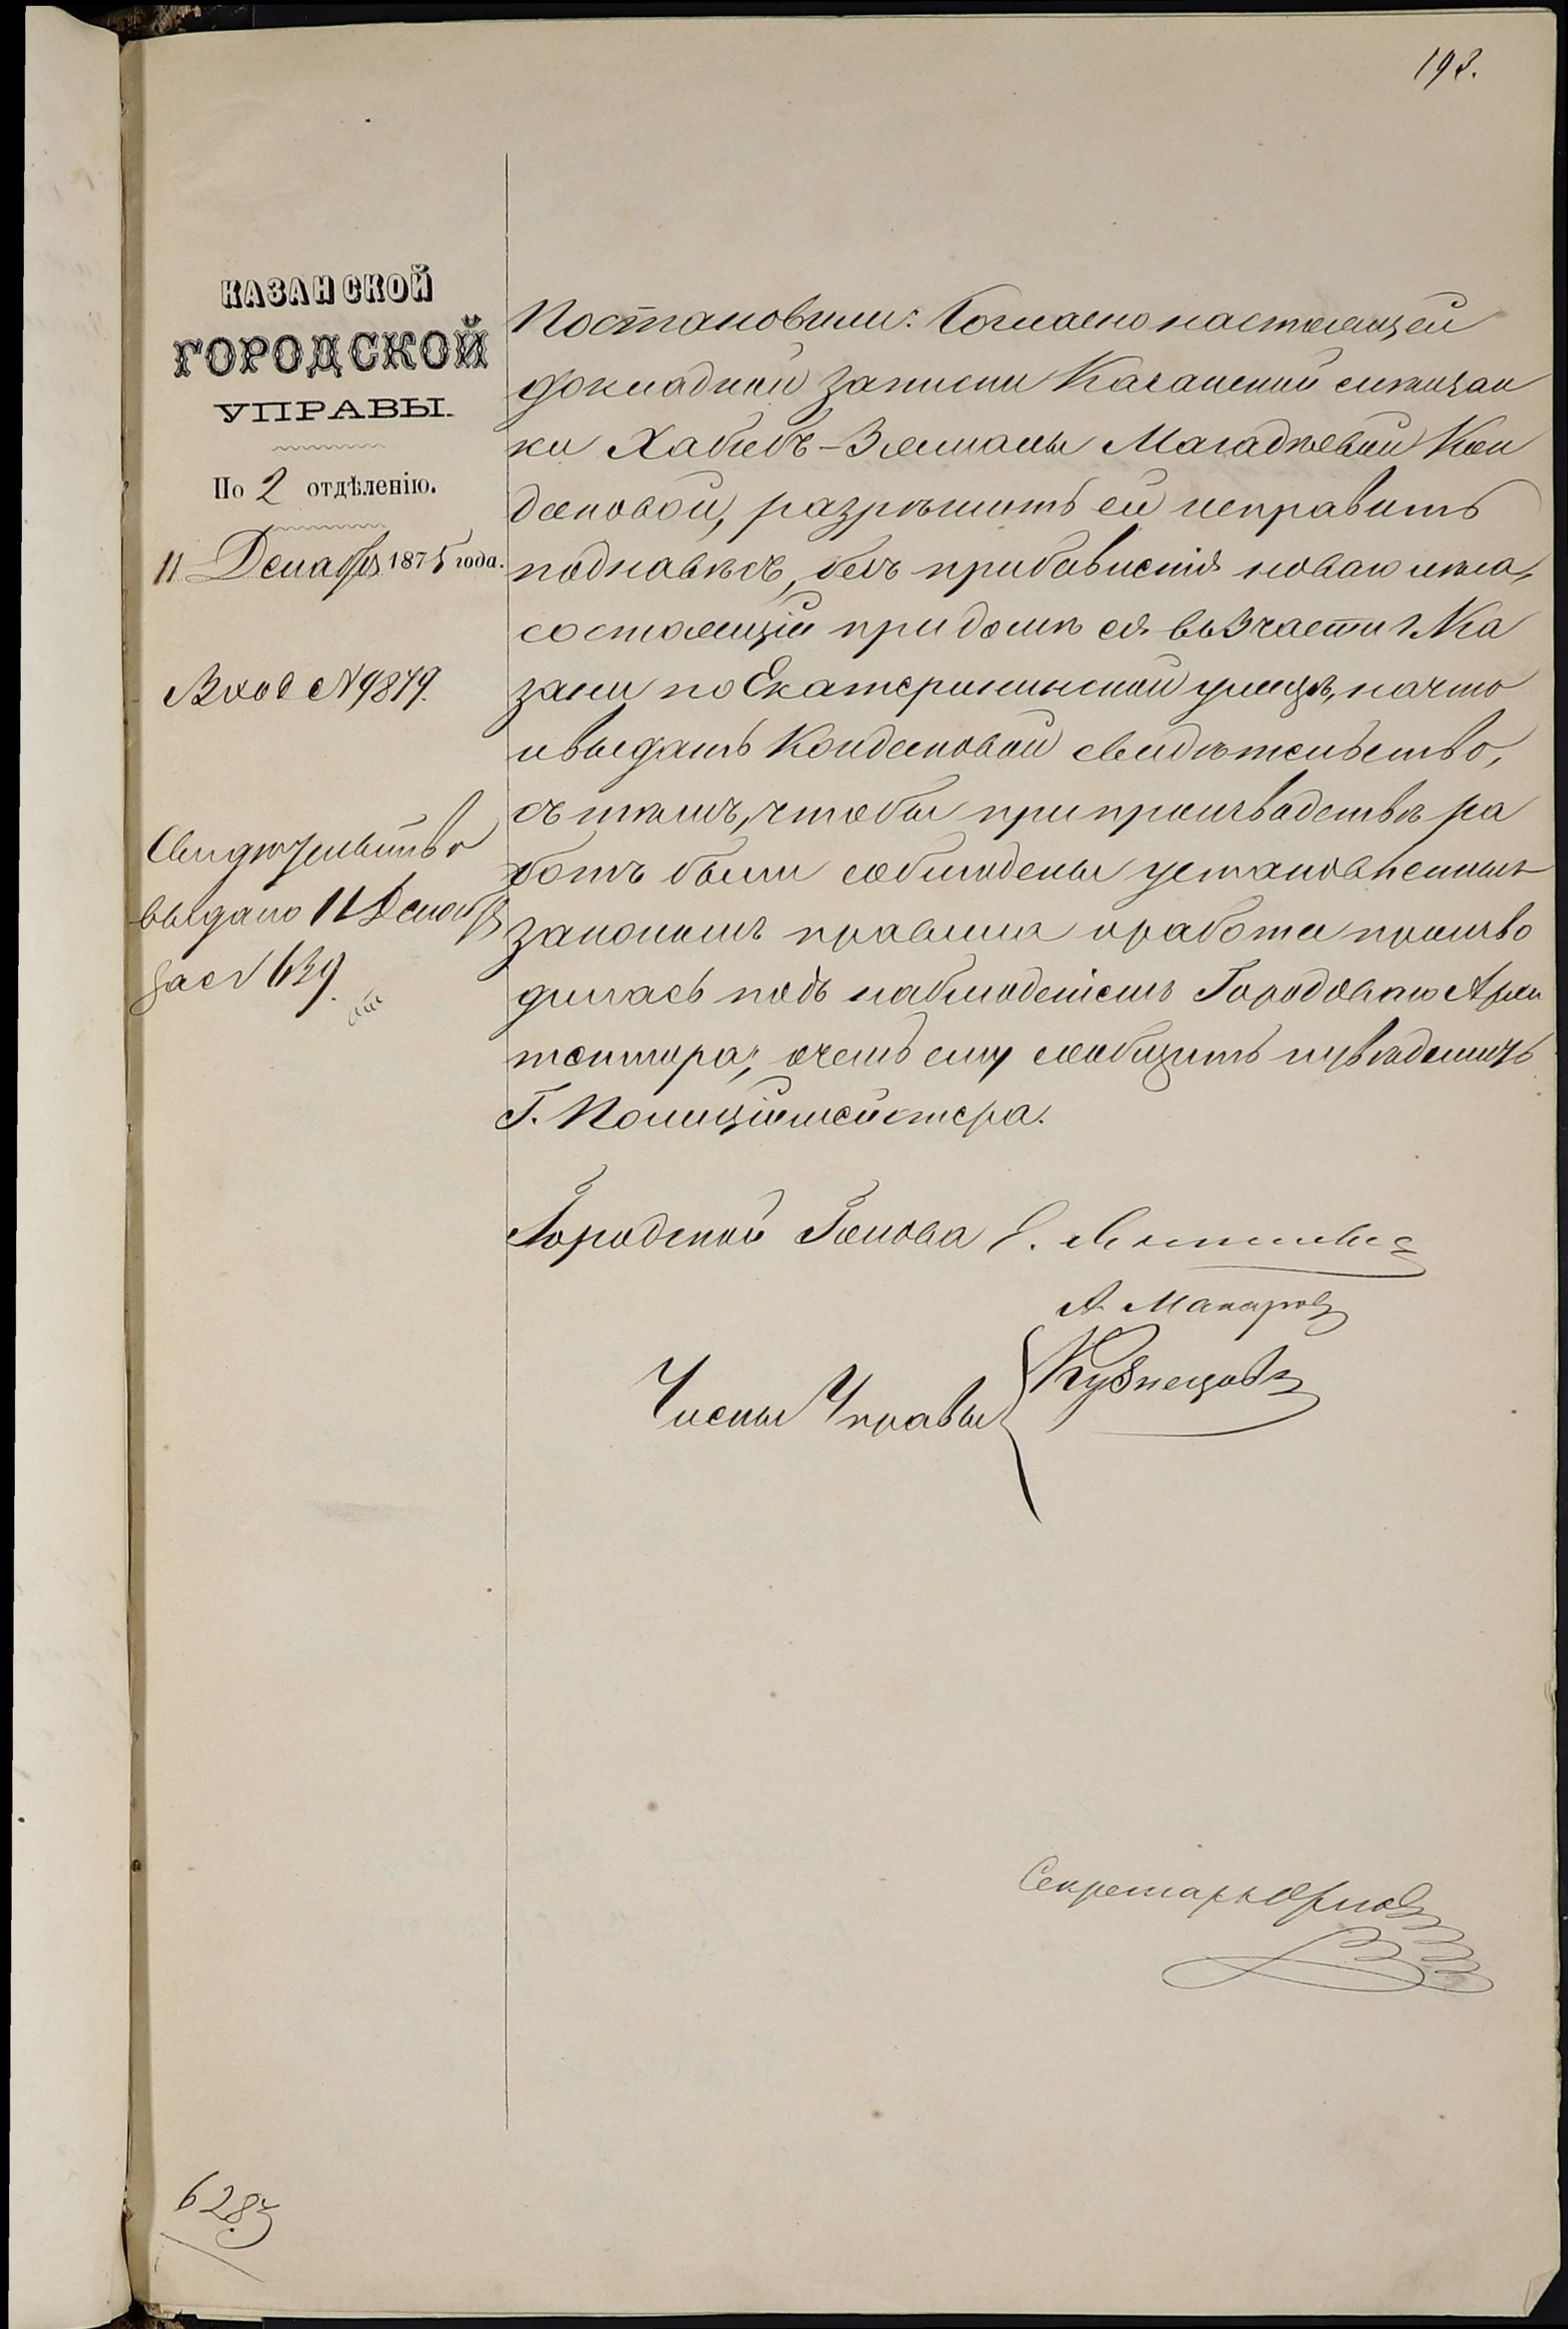 193.
КАЗАНСКОЙ
ГОРОДСКОЙ
УПРАВЫ.
По 2 отдѣленію.
11 Декабря 1875 года.
Вход №9879.
Свидѣтельство
выдано 11 Декабр
за №639.
Постановили: Согласно настоящей
докладной записки Казанской мѣщан
ки Хабибъ-Земланы Магадѣевой Кон
даковой, разрѣшить ей исправить
поднавѣсъ, безъ прибавленія новаго лѣса,
состоящій при домѣ ея въ 3 части г. Ка
зани по Екатерининской улицѣ, на что
и выдать Кондаковой свидѣтельство,
съ тѣмъ, чтобы при производствѣ ра
ботъ были соблюдены установленныя
закономъ правила и работа произво
дилась подъ наблюденіемъ Городоваго Архи
тектора, о чемъ ему сообщить и увѣдомить
Г. Полиціймейстера.
Городской Голова
А. Макаровъ
Члены Управы { Кузнецовъ
Секретарь Орловъ
6283